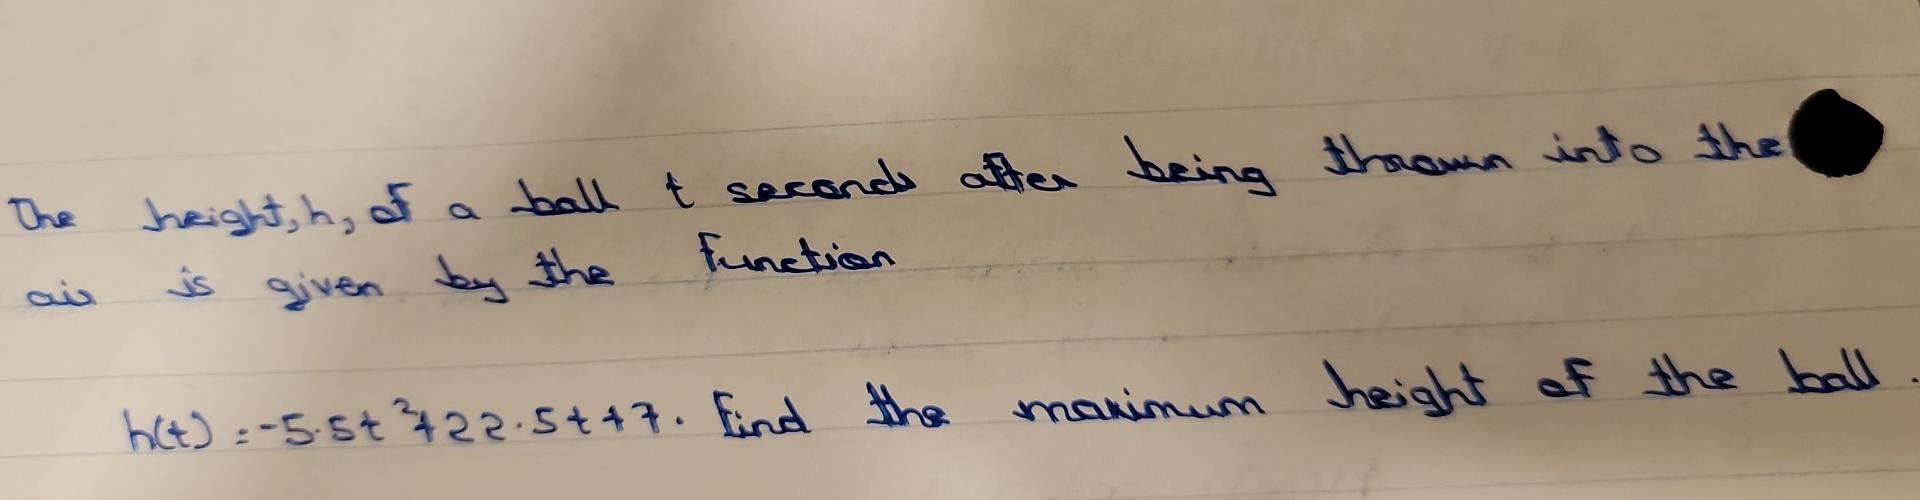 The height, h, of a ball t seconds after being thrown into the
air is given by the function
h(t) = -5.5t²+22.5t+7. Find the maximum height of the ball.